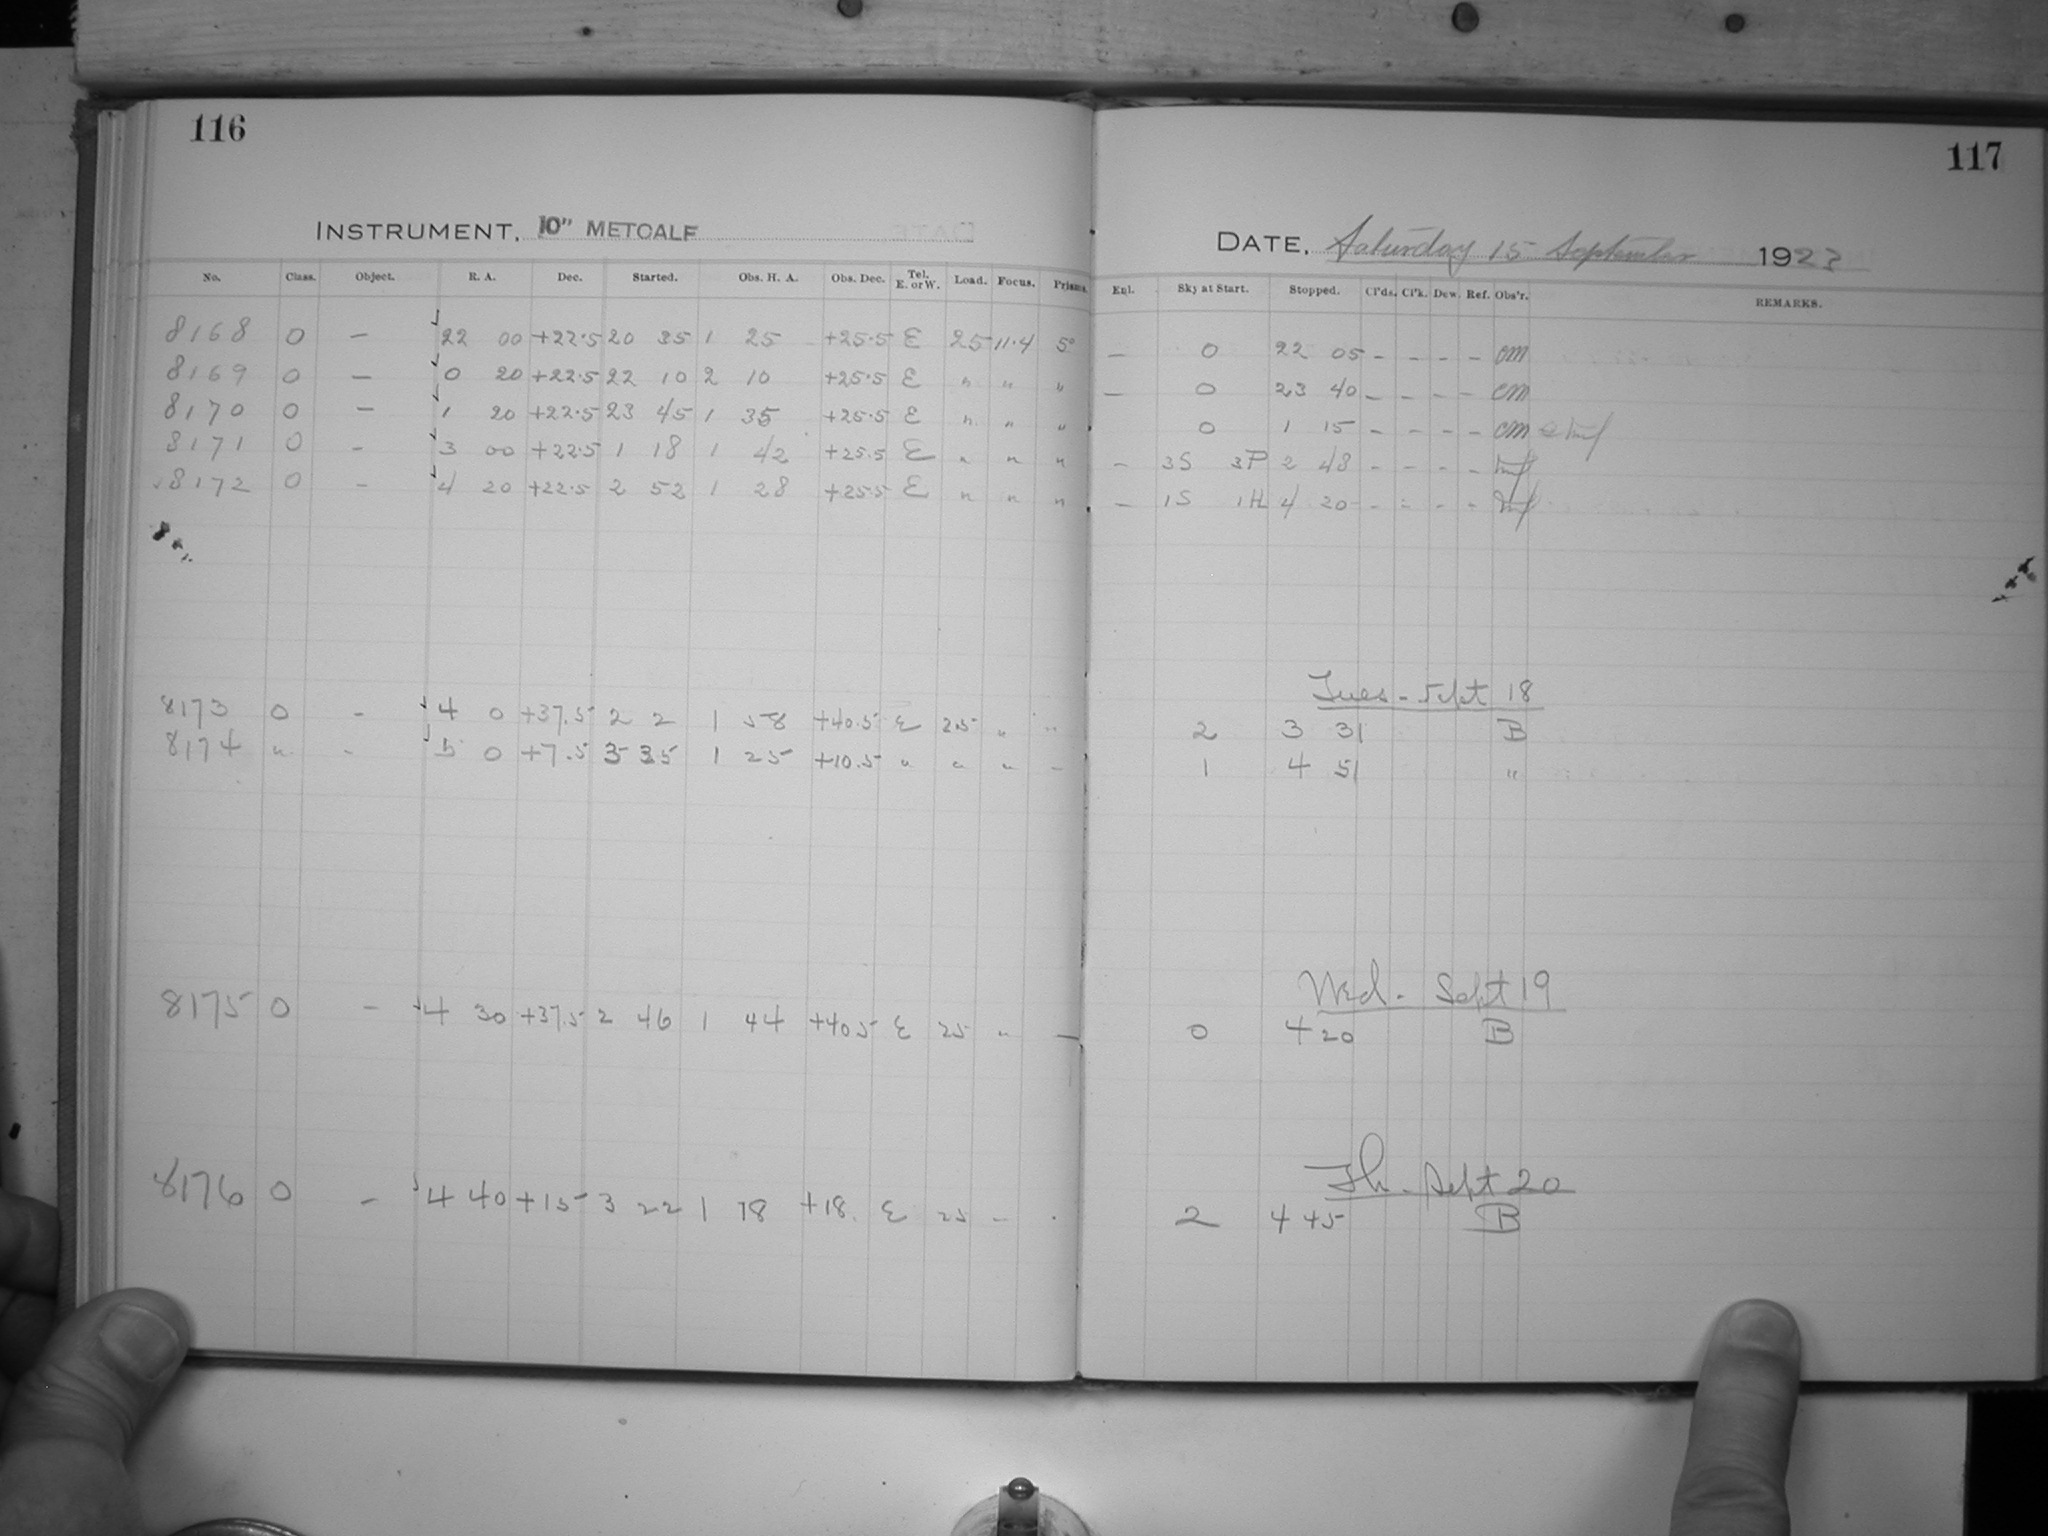 116
INSTRUMENT, 10" METCALF
No. Class. Object. R. A. Dec. Started. Obs. H. A. Obs. Dec. Tel. E. or W. Load. Focus. Prisms.
8168 0 - 22 00 +22.5 20 35 1 25 +25.5 E 25 11.4 5°
8169 0 - 0 20 +22.5 22 10 2 10 +25.5 E " " "
8170 0 - 1 20 +22.5 23 45 1 35 +25.5 E " " "
8171 0 - 3 00 +22.5 1 18 1 42 +25.5 E " " "
8172 0 - 4 20 +22.5 2 52 1 28 +25.5 E " " "
8173 0 - 4 0 +37.5 2 2 1 58 +40.5 E 25 " "
8174 " - 5 0 +7.5 3 35 1 25 +10.5 " " " -
8175 0 - 4 30 +37.5 2 46 1 44 +40.5 E 25 " -
8176 0 - 4 40 +15 3 22 1 18 +18. E 25 -
117
DATE, Saturday 15 September 1923
Enl. Sky at Start. Stopped. Cl'ds. Cl'k. Dew. Ref. Obs'r. REMARKS.
- 0 22 05 - - - - cm
- 0 23 40 - - - - cm
0 1 15 - - - - cm
- 3S 3P 2 48 - - - -
- 1S 1H 4 20 - - - -
Tues - Sept 18
2 3 31 B
1 4 51 "
Wed - Sept 19
0 4 20 B
Th - Sept 20
2 4 45 B